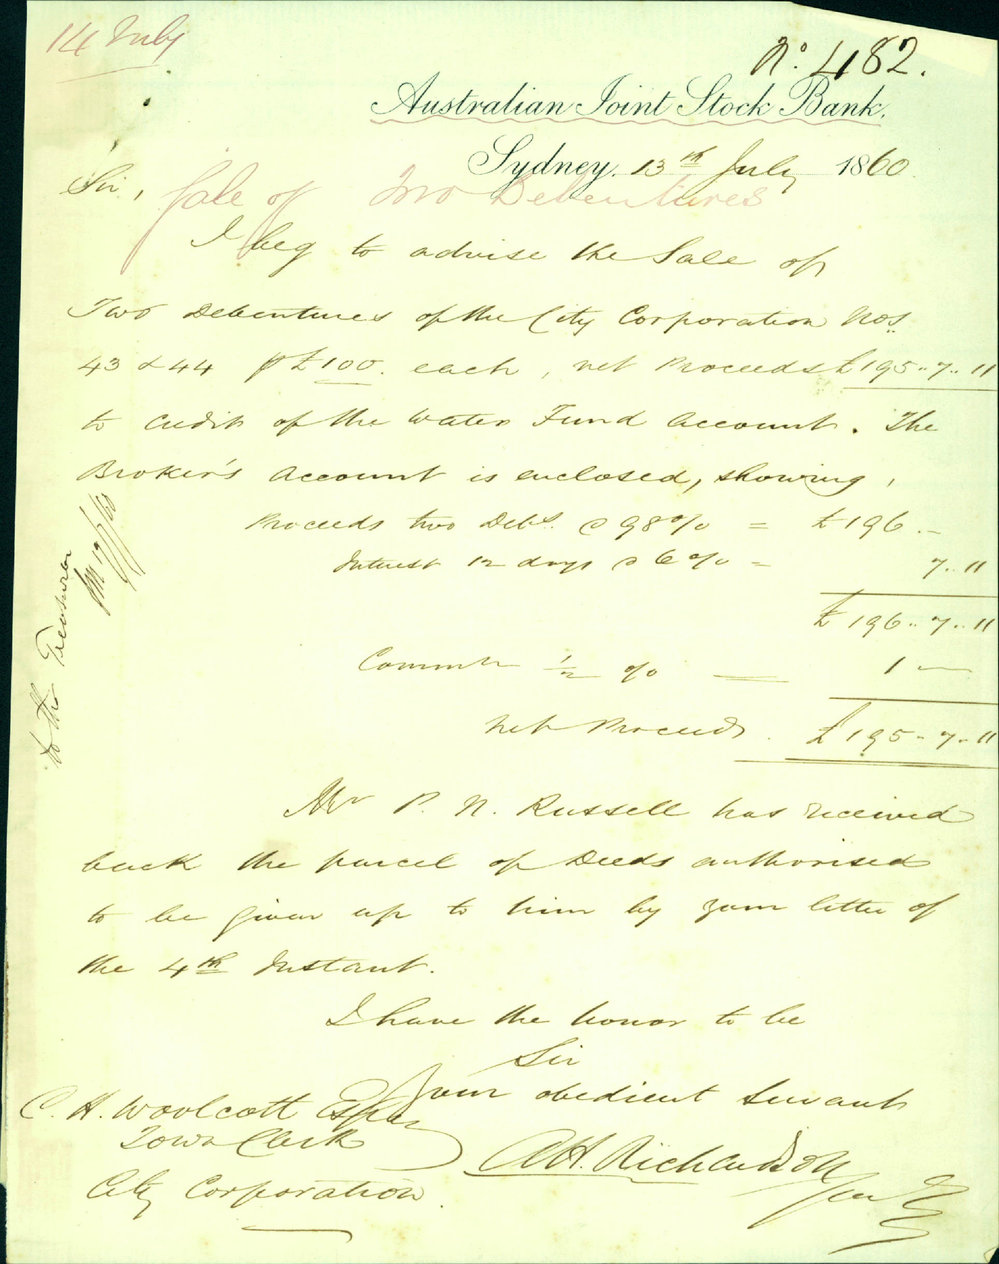 14 July
No. 482.
Australian Joint Stock Bank.
Sydney, 13th July 1860
Sir,
Sale of Two Debentures
I beg to advise the Sale of
Two Debentures of the City Corporation Nos
43 & 44 p £100. each, net Proceeds £195..7..11
to credit of the Water Fund Account. The
Broker's Account is enclosed, showing,
Proceeds two Debs. @ 98% = £196.-
Interest 12 days @ 6% = 7..11
£196..7..11
Commn ½ % — 1 —
Net Proceeds. £195-7-11
Mr P. N. Russell has received
back the parcel of Deeds authorised
to be given up to him by your letter of
the 4th Instant.
I have the honor to be
Sir
Your obedient Servant
A H. Richardson
C. H. Woolcott Esqre
Town Clerk
City Corporation.
To the Treasurer
19/7/60